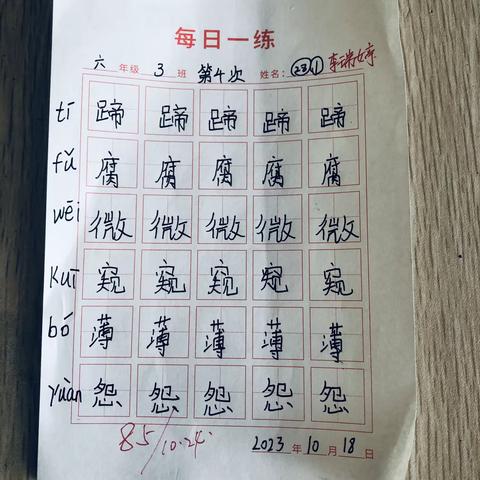 每日一练
六年级 3 班 第4次 姓名:
tī 蹄 蹄 蹄 蹄 蹄
fǔ 腐 腐 腐 腐 腐
wēi 微 微 微 微 微
kuī 窥 窥 窥 窥 窥
bó 薄 薄 薄 薄 薄
yuàn 怨 怨 怨 怨 怨
85/10.24.
2023 年 10 月 18 日